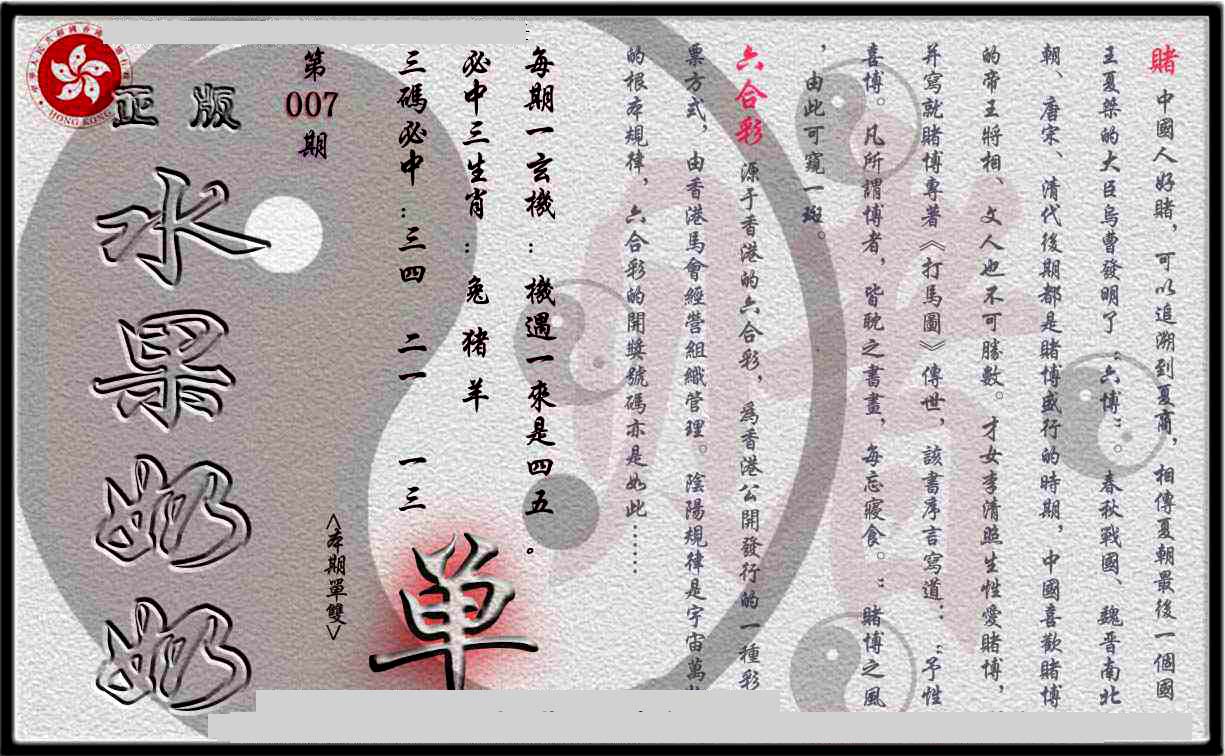 賭 中國人好賭，可以追溯到夏商，相傳夏朝最後一個國
王夏桀的大臣烏曹發明了“六博”。春秋戰國、魏晋南北
朝、唐宋、清代後期都是賭博盛行的時期，中國喜歡賭博
的帝王將相、文人也不可勝數。才女李清照生性愛賭博，
并寫就賭博專著《打馬圖》傳世，該書序言寫道：“予性
喜博。凡所謂博者，皆耽之書畫，每忘寢食。”賭博之風
，由此可窺一斑。
六合彩 源于香港的六合彩，爲香港公開發行的一種彩
票方式，由香港馬會經營組織管理。陰陽規律是宇宙萬
的根本規律，六合彩的開獎號碼亦是如此……
每期一玄機：機遇一來是四五。
必中三生肖：兔 猪 羊
三碼必中：三四 二一 一三
单
<本期單雙>
第007期
正版
水果奶奶
HONG KONG